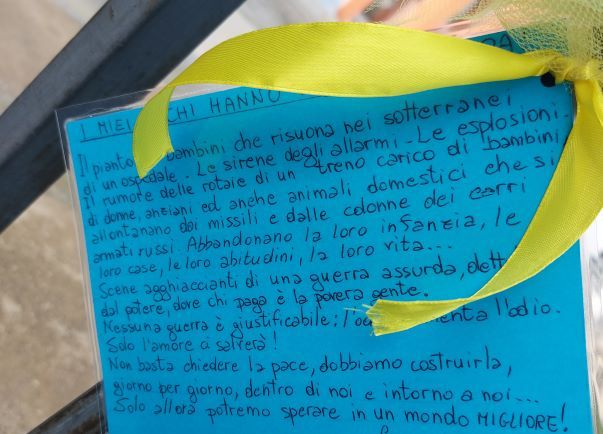 I MIEI CHI HANNO RA
Il pianto bambini che risuona nei sotterranei
di un ospedale. Le sirene degli allarmi. Le esplosioni.
Il rumore delle rotaie di un treno carico di bambini
di donne, anziani ed anche animali domestici che si
allontanano dai missili e dalle colonne dei carri
armati russi. Abbandonano la loro infanzia, le
loro case, le loro abitudini, la loro vita...
Scene agghiaccianti di una guerra assurda, dett
dal potere, dove chi paga è la povera gente.
Nessuna guerra è giustificabile: l'od menta l'odio.
Solo l'amore ci salverà!
Non basta chiedere la pace, dobbiamo costruirla,
giorno per giorno, dentro di noi e intorno a noi...
Solo allora potremo sperare in un mondo MIGLIORE!